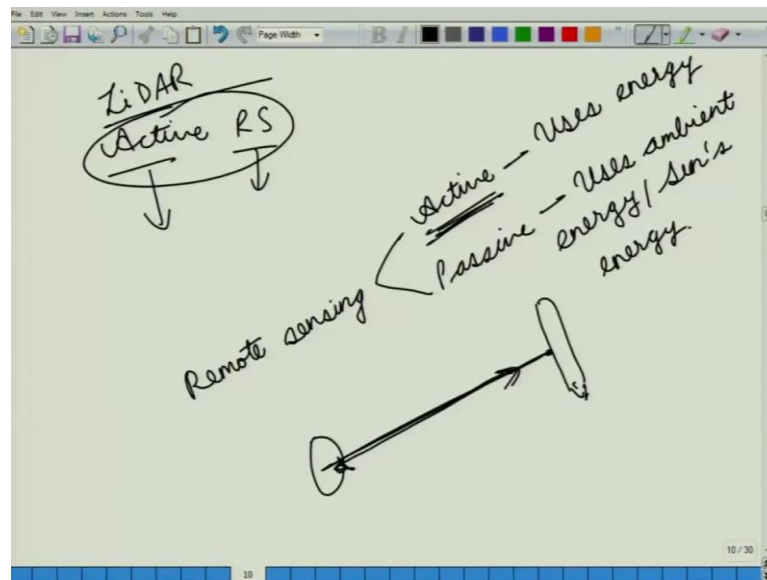 File Edit View Insert Actions Tools Help
Page Width
B I
LiDAR
Active RS
Remote sensing
Active - Uses energy
Passive - Uses ambient
energy/ Sun's
energy.
10 / 30
10